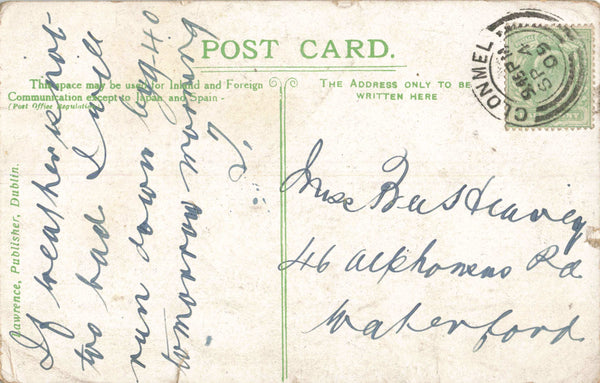 POST CARD.
This space may be used for Inland and Foreign
Communication except to Japan and Spain -
(Post Office Regulation)
THE ADDRESS ONLY TO BE
WRITTEN HERE
Lawrence, Publisher, Dublin.
CLONMEL
9:15 PM
SP 4
09
If weather is not
too bad I will
run down by 9.40
tomorrow morning
J.
Miss Heavey
46 Alphonsus Rd
Waterford